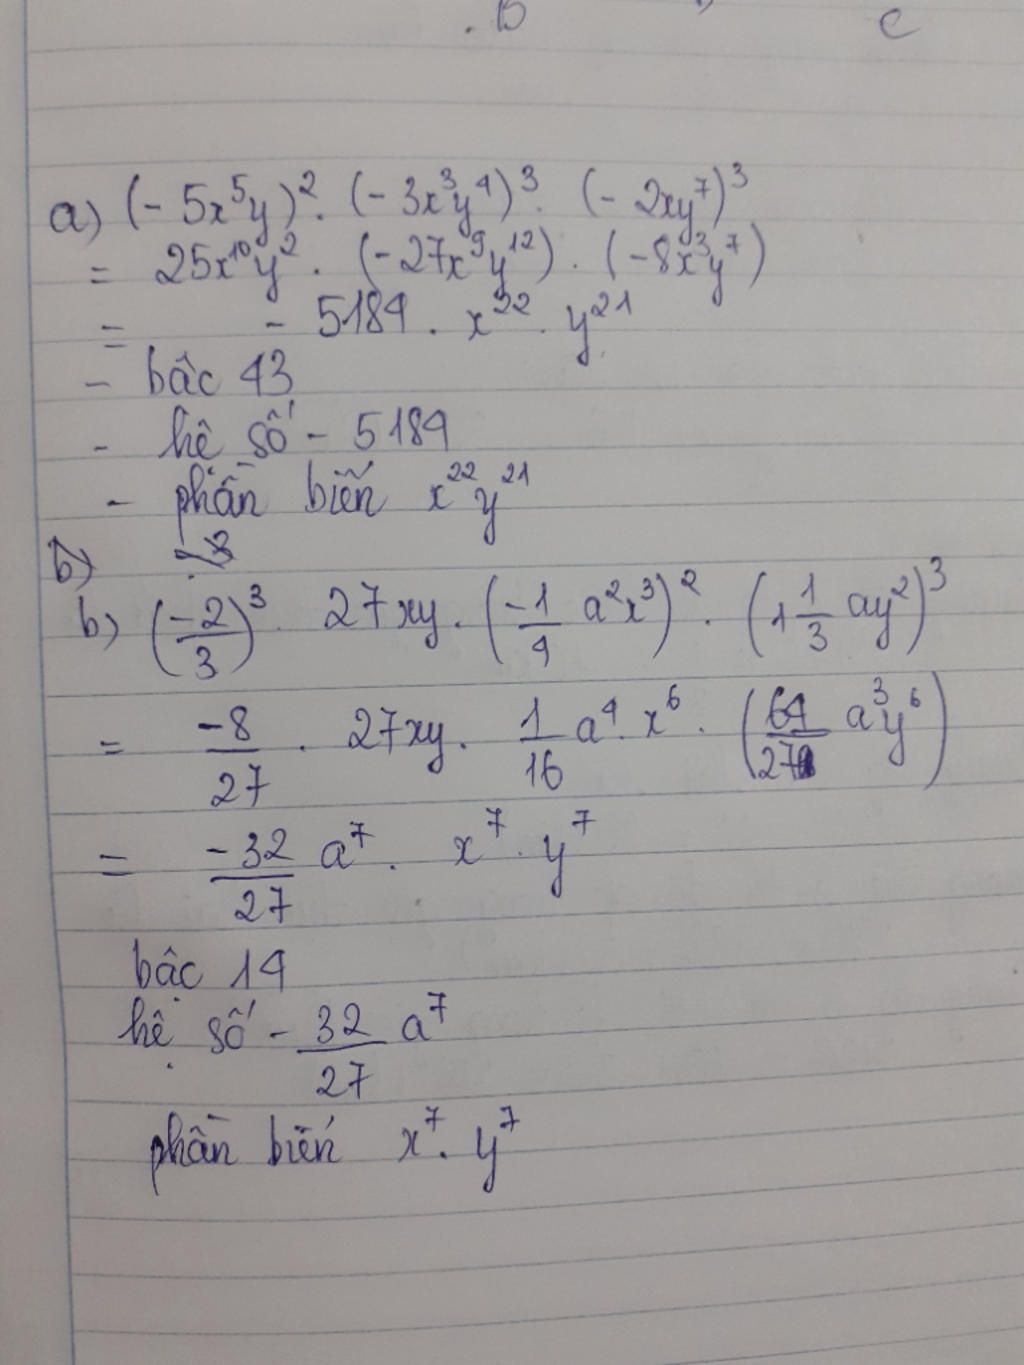 B c
a) (- 5x⁵y)². (- 3x³y⁴)³. (- 2xy⁷)³
= 25x¹⁰y² . (-27x⁹y¹²) . (-8x³y⁷)
= - 5184 . x²² . y²¹
- bậc 43
- hệ số - 5184
- phần biến x²²y²¹
b)
b) (-2/3)³. 27xy. (-1/4 a²x³)². (1 1/3 ay²)³
= -8/27 . 27xy. 1/16 a⁴. x⁶. (64/27 a³y⁶)
= -32/27 a⁷. x⁷. y⁷
bậc 14
hệ số - 32/27 a⁷
phần biến x⁷. y⁷